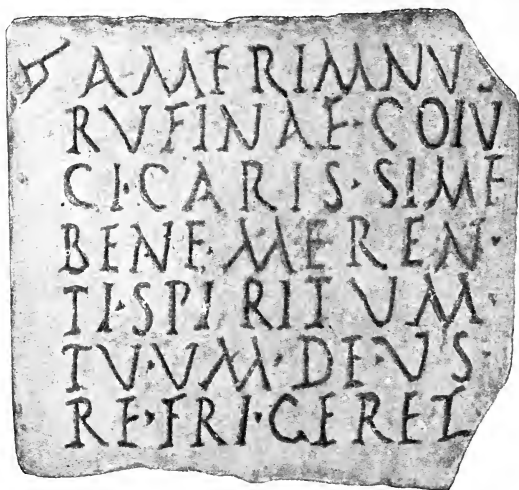 A·MERIMNV·
RVFINAE·COIV
CI·CARIS·SIME
BENE·MEREN·
TI·SPIRITVM·
TV·VM·DE·VS·
RE·FRI·GERET